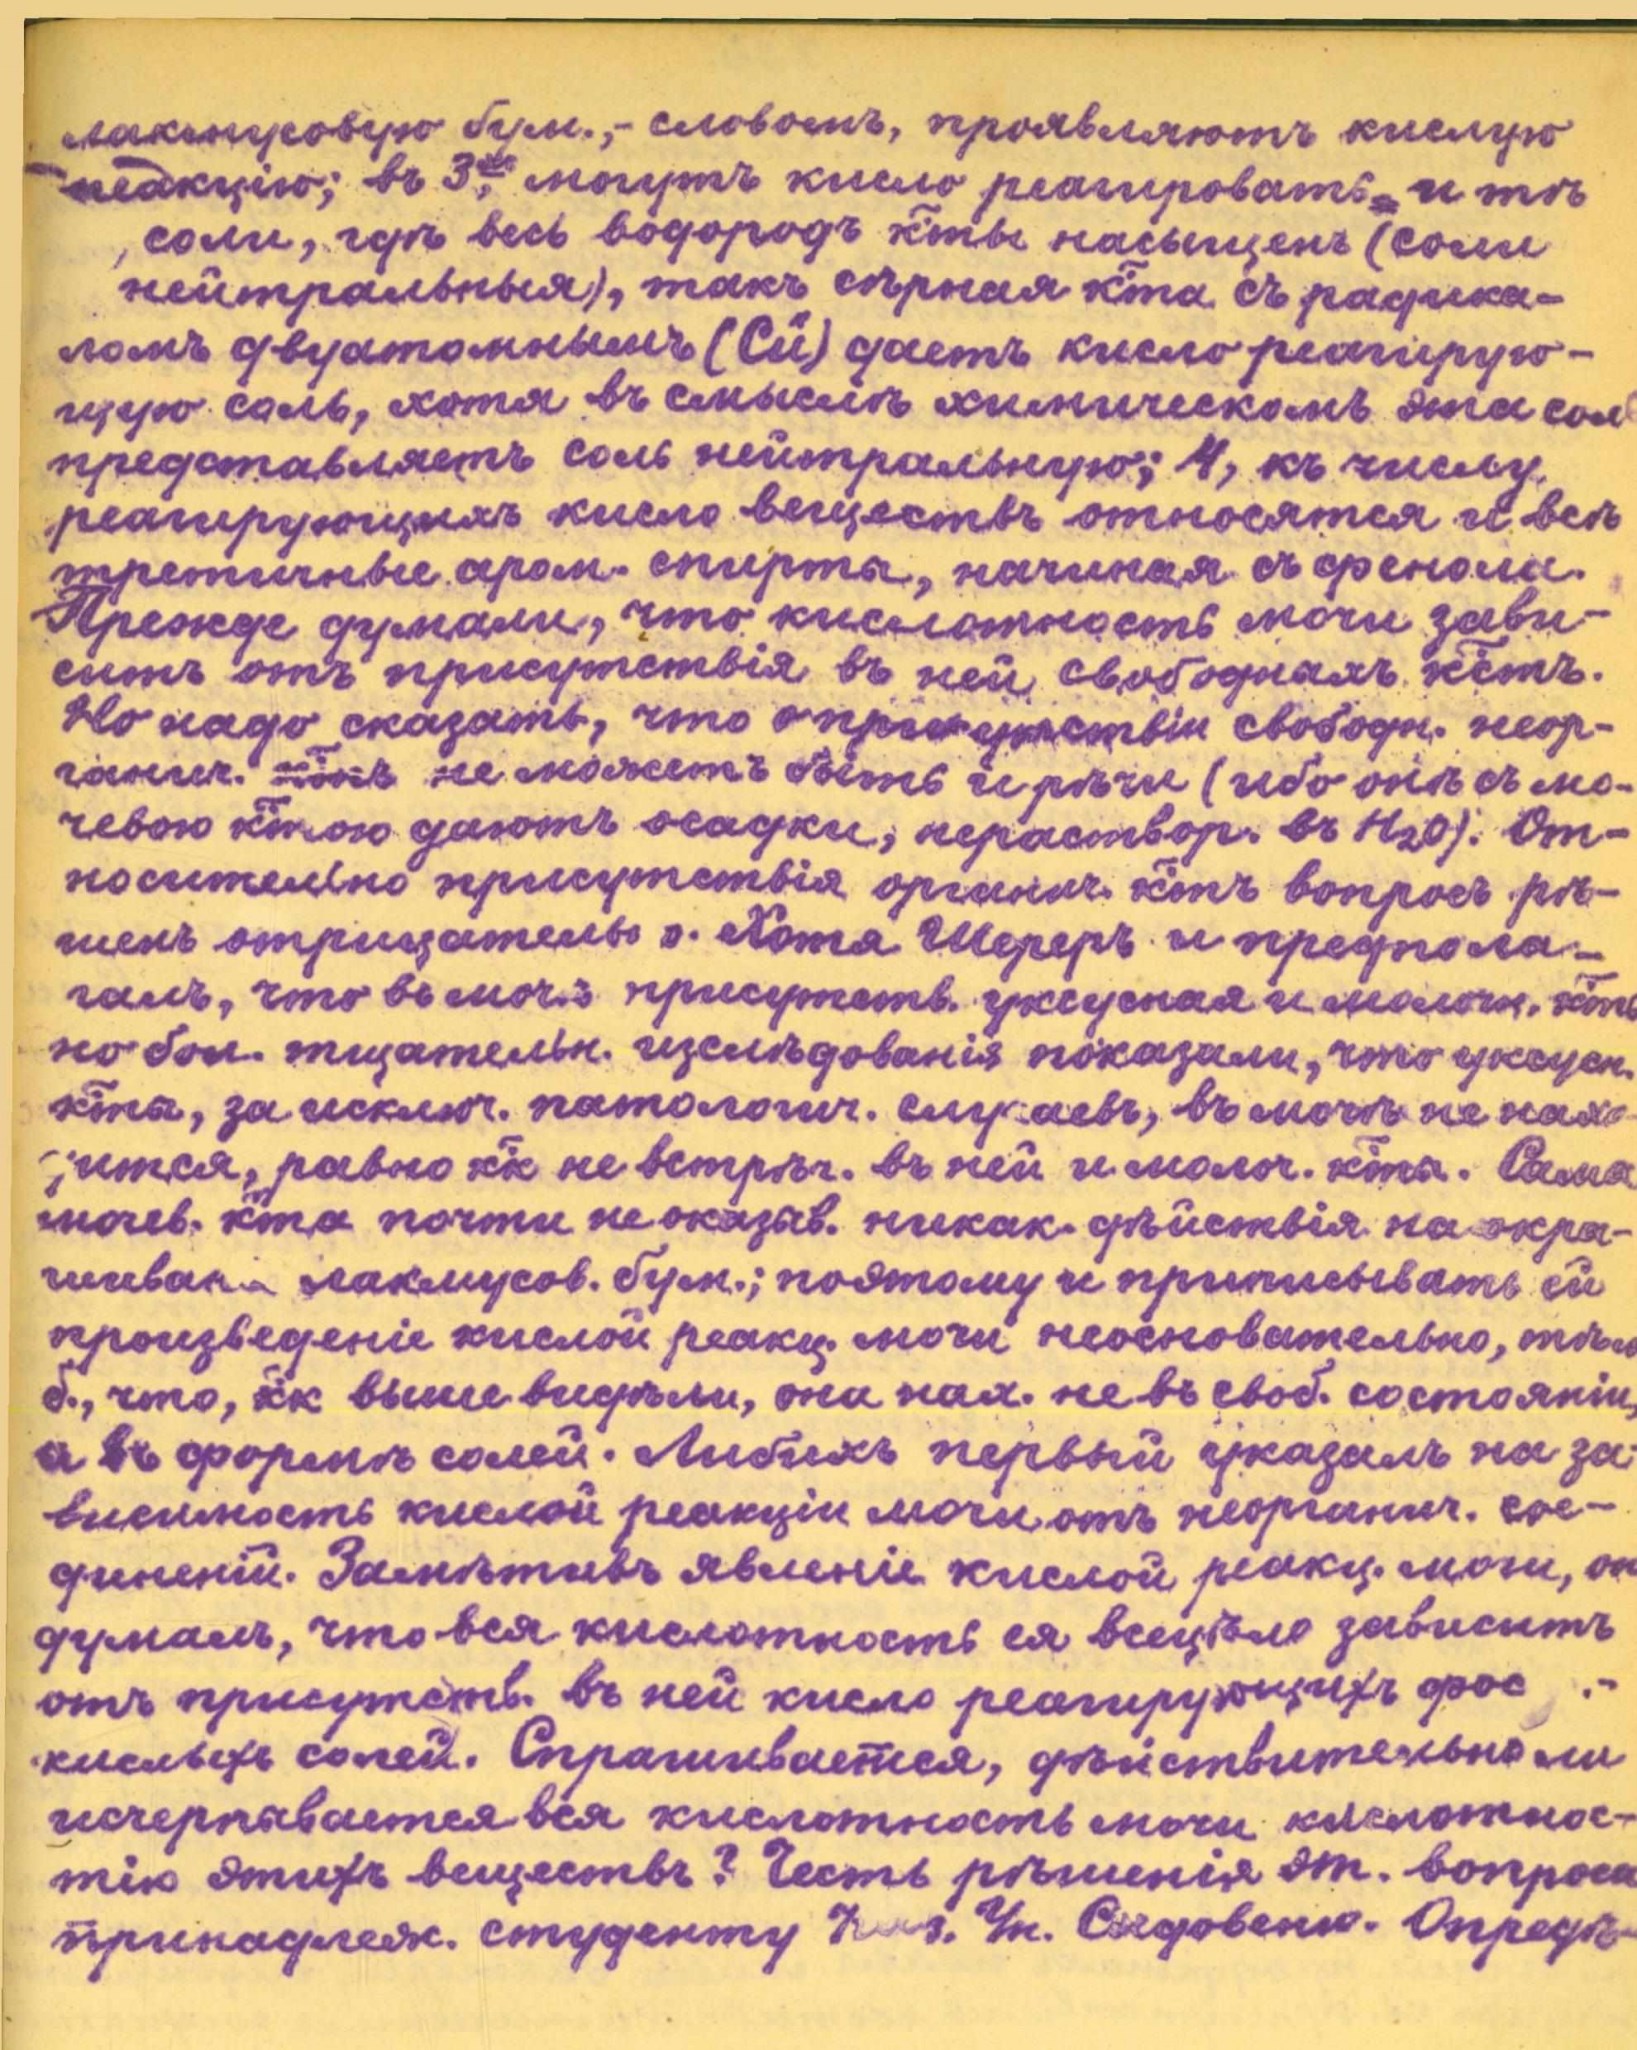 лакмусовую бум.,- словомъ, проявляютъ кислую
реакцію; въ 3хъ, могутъ кисло реагировать и тѣ
соли, гдѣ весь водородъ к̄ты насыщенъ (соли
нейтральныя), такъ сѣрная к̄та съ радика-
ломъ двуатомнымъ (Cu̎) даетъ кисло реагирую-
щую соль, хотя въ смыслѣ химическомъ эта сол
представляетъ соль нейтральную; 4, къ числу
реагирующихъ кисло веществъ относятся и всѣ
третичные аром. спирты, начиная съ фенола.
Прежде думали, что кислотность мочи зави-
ситъ отъ присутствія въ ней свободныхъ к̄стъ.
Но надо сказать, что о присутствіи свободн. неор-
ганич. к̄тъ не можетъ быть и рѣчи (ибо онѣ съ мо-
чевою к̄тою даютъ осадки, нераствор. въ H₂O). От-
носительно присутствія органич. к̄тъ вопросъ рѣ-
шенъ отрицательно. Хотя Шереръ и предпола-
галъ, что въ мочѣ присутств. уксусная и молочн. к̄ты
но бол. тщательн. изслѣдованія показали, что уксусн.
к̄та, за исключ. патологич. случаевъ, въ мочѣ не нахо-
дится, равно к̄к не встрѣч. въ ней и молоч. к̄та. Сама
мочев. к̄та почти не оказыв. никак. дѣйствія на окра-
шиван. лакмусов. бум.; поэтому и приписывать ей
произведеніе кислой реакц. мочи неосновательно, тѣм
б., что, к̄к выше видѣли, она нах. не въ своб. состояніи,
а въ формѣ солей. Либихъ первый указалъ на за-
висимость кислой реакціи мочи отъ неорганич. сое-
диненій. Замѣтивъ явленіе кислой реакц. мочи, он
думалъ, что вся кислотность ея всецѣло зависитъ
отъ присутств. въ ней кисло реагирующихъ фос .-
кислыхъ солей. Спрашивается, дѣйствительно ли
исчерпывается вся кислотность мочи кислотнос-
тію этихъ веществъ? Честь рѣшенія эт. вопроса
принадлеж. студенту Каз. Ун. Сидовеню. Опредѣ-